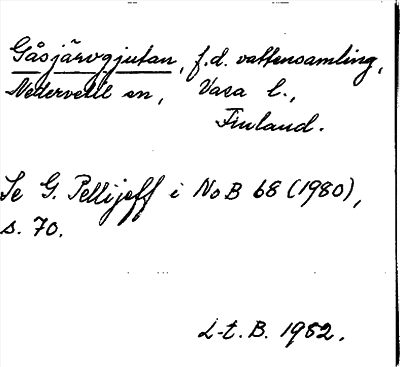 Gåsjärvgjutan, f.d. vattensamling,
Nedervetil sn, Vasa l.,
Finland.
Se G. Pellijeff i NoB 68 (1980),
s. 70.
L-t. B. 1982.